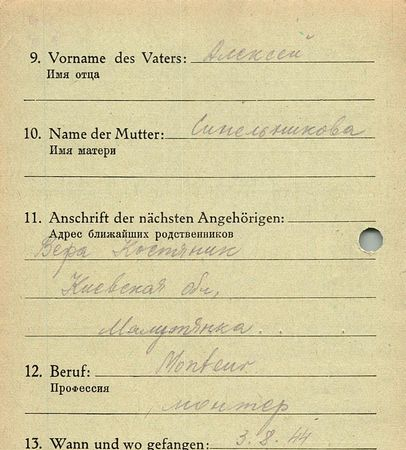 9. Vorname des Vaters: Алексей
Имя отца
10. Name der Mutter: Синельникова
Имя матери
11. Anschrift der nächsten Angehörigen:
Адрес ближайших родственников
Вера Костяник
Киевская обл,
Малютянка
12. Beruf: Monteur
Профессия
монтер
13. Wann und wo gefangen: 3. 8. 44